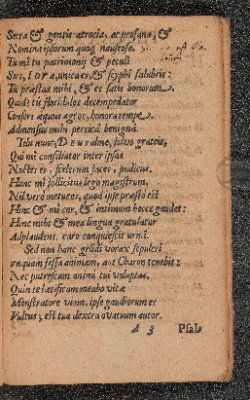 Sacra & gentis atrocia, ac profana, &
Nomina ipsorum quoq́; nauseosa.
Tu mî tu patrimonij & peculî
Sors, I O V A, unica es, & scyphi salubris:
Tu præstas mihi, & es satis bonorum.
Quod si tu floridulos decempedator
Consors æquus agros, honora tempe
Admensus mihi perticâ benignâ.
Tibi nunc, DEUS alme, solvo grateis,
Qui mî consiliator inter ipsas
Nocteis es, scelerum facis, pudicus.
Hunc mî sollicitus lego magistrum,
Nil vero metuens, quod ipse præsto est
Hinc & mî cor, & intimum hocce gaudet:
Hinc mihi & mea lingua gratulatur
Adplaudens. caro conquiescit
Sed non hanc gelidi vorax sepulcri
fessa animam, aut Charon tenebit:
Nec putrescam animi tui voluptas,
Quin te lætificum meabo vitæ
Monstratore viam. ipse gaudiorum es
Vultus; est tua dextra ovatuum autor.
A 3 PLL